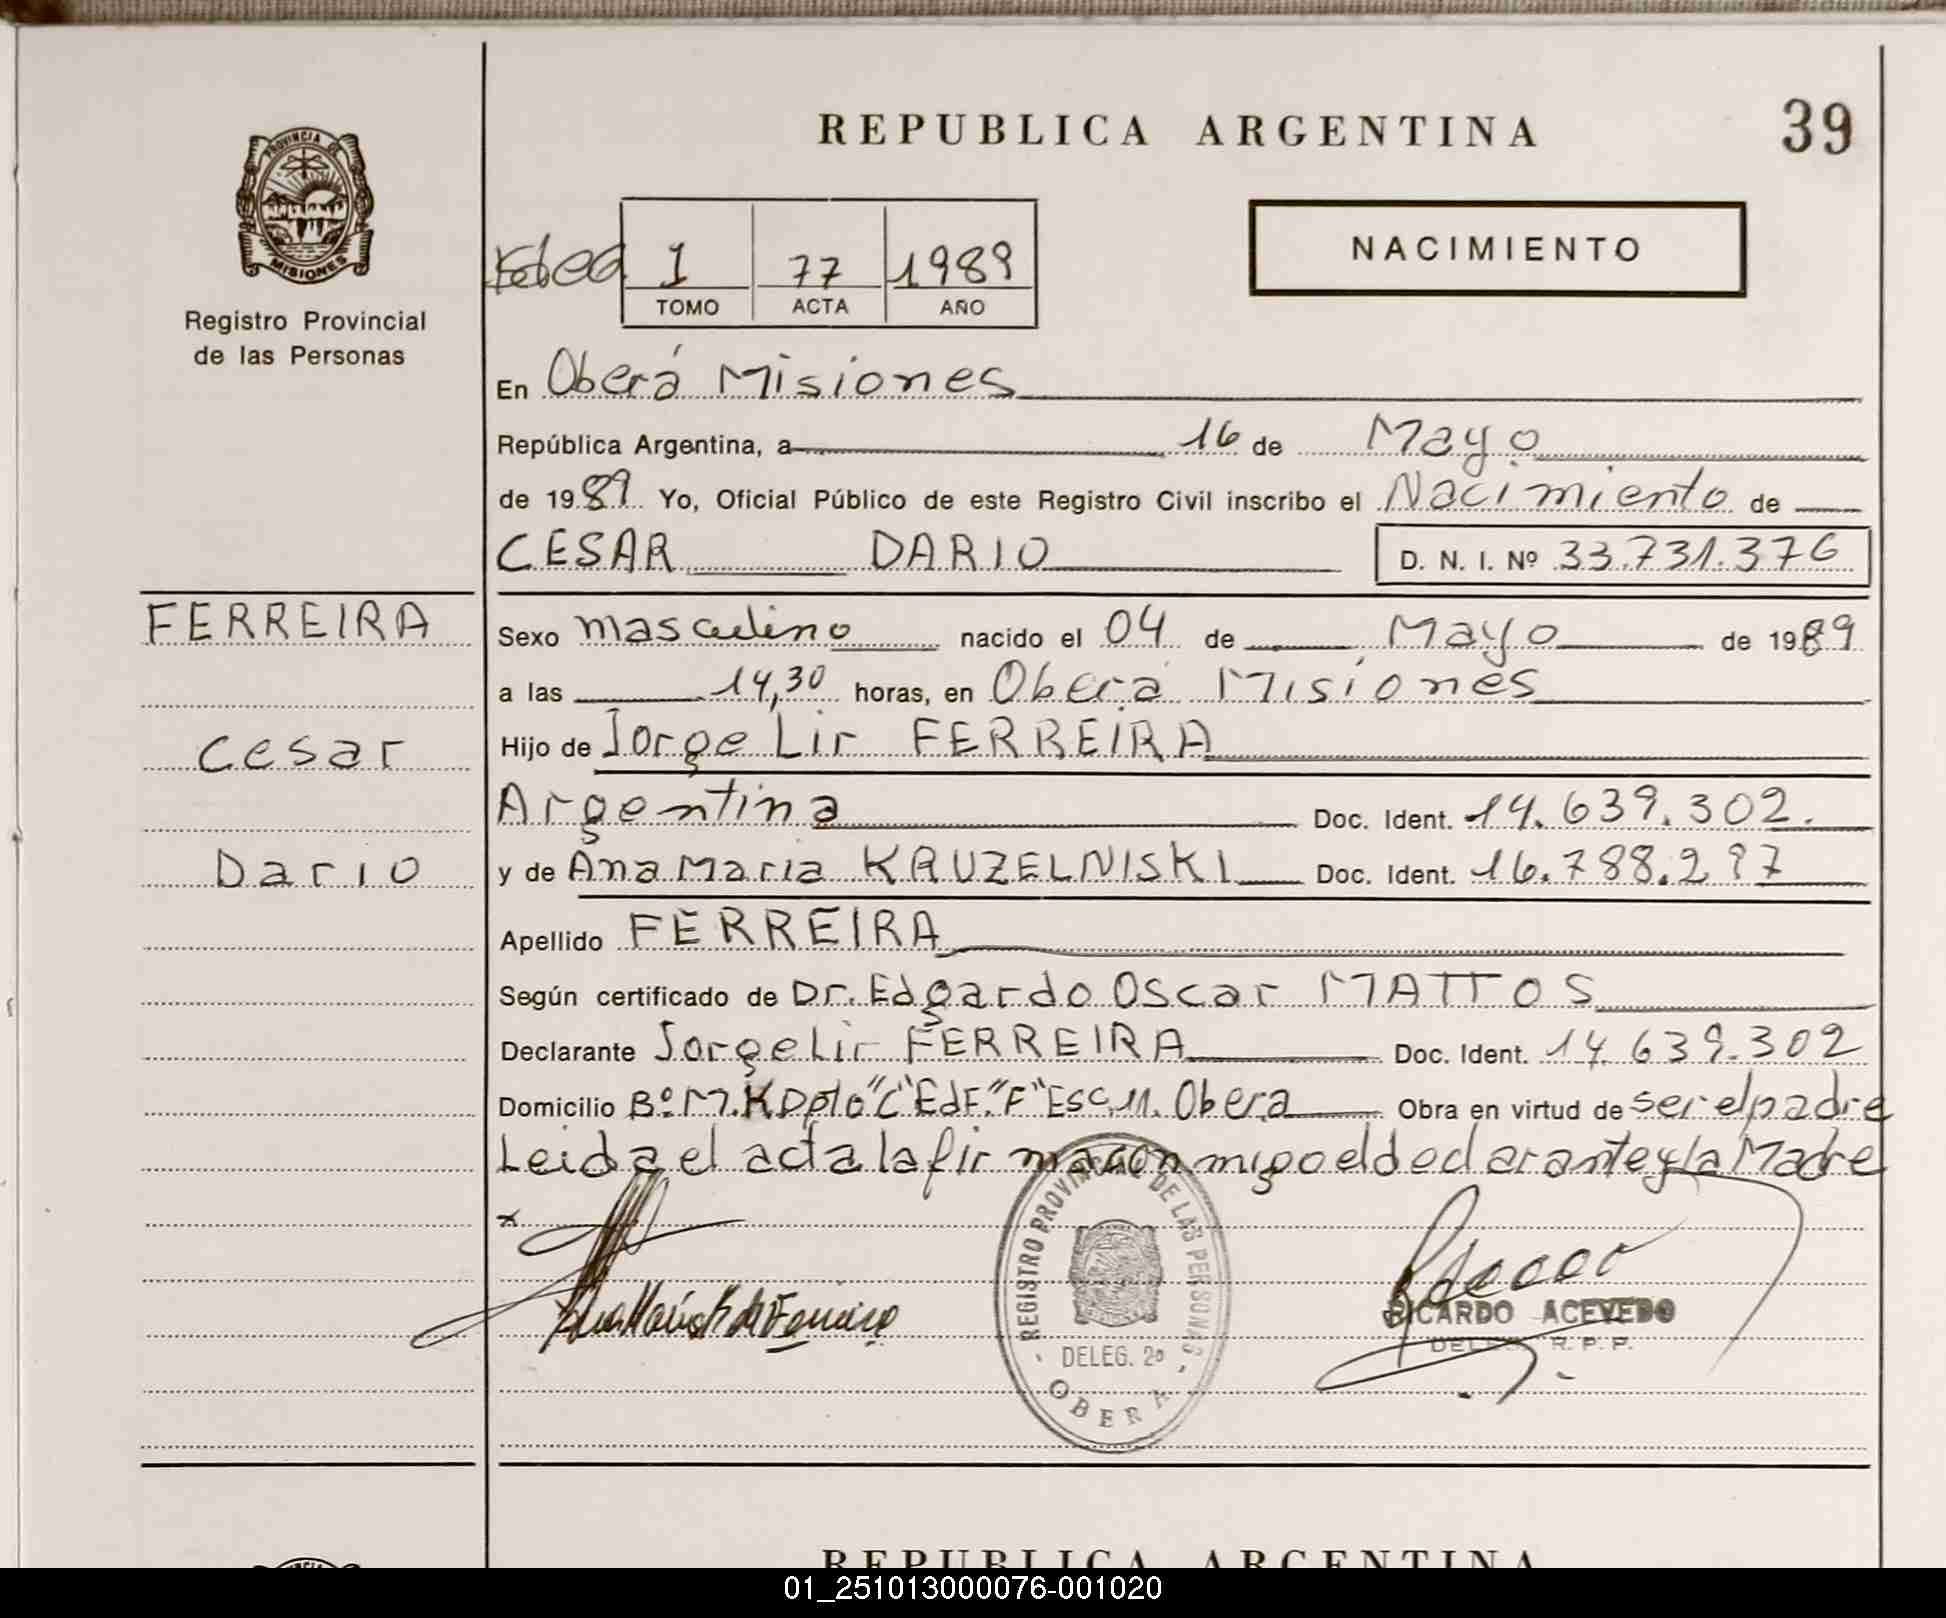 REPUBLICA ARGENTINA
39
PROVINCIA DE
MISIONES
Registro Provincial
de las Personas
1 77 1989
TOMO ACTA AÑO
NACIMIENTO
En Oberá Misiones
República Argentina, a 16 de Mayo
de 1989 Yo, Oficial Público de este Registro Civil inscribo el Nacimiento de
CESAR DARIO D. N. I. Nº 33.731.376
FERREIRA
Cesar
Dario
Sexo masculino nacido el 04 de Mayo de 1989
a las 14,30 horas, en Oberá Misiones
Hijo de Jorge Lir FERREIRA
Argentina Doc. Ident. 14.639.302.
y de Ana Maria KAUZELNISKI Doc. Ident. 16.788.297
Apellido FERREIRA
Según certificado de Dr. Edgardo Oscar MATTOS
Declarante Jorge Lir FERREIRA Doc. Ident. 14.639.302
Domicilio Bº.M.K Dpto "C" Edf. "F" Esc. 11. Obera Obra en virtud de ser el padre
Leida el acta la firman conmigo el declarante y la Madre
x
REGISTRO PROVINCIAL DE LAS PERSONAS
DELEG. 2º
OBERA
RICARDO ACEVEDO
R. P. P.
REPUBLICA ARGENTINA
01_251013000076-001020